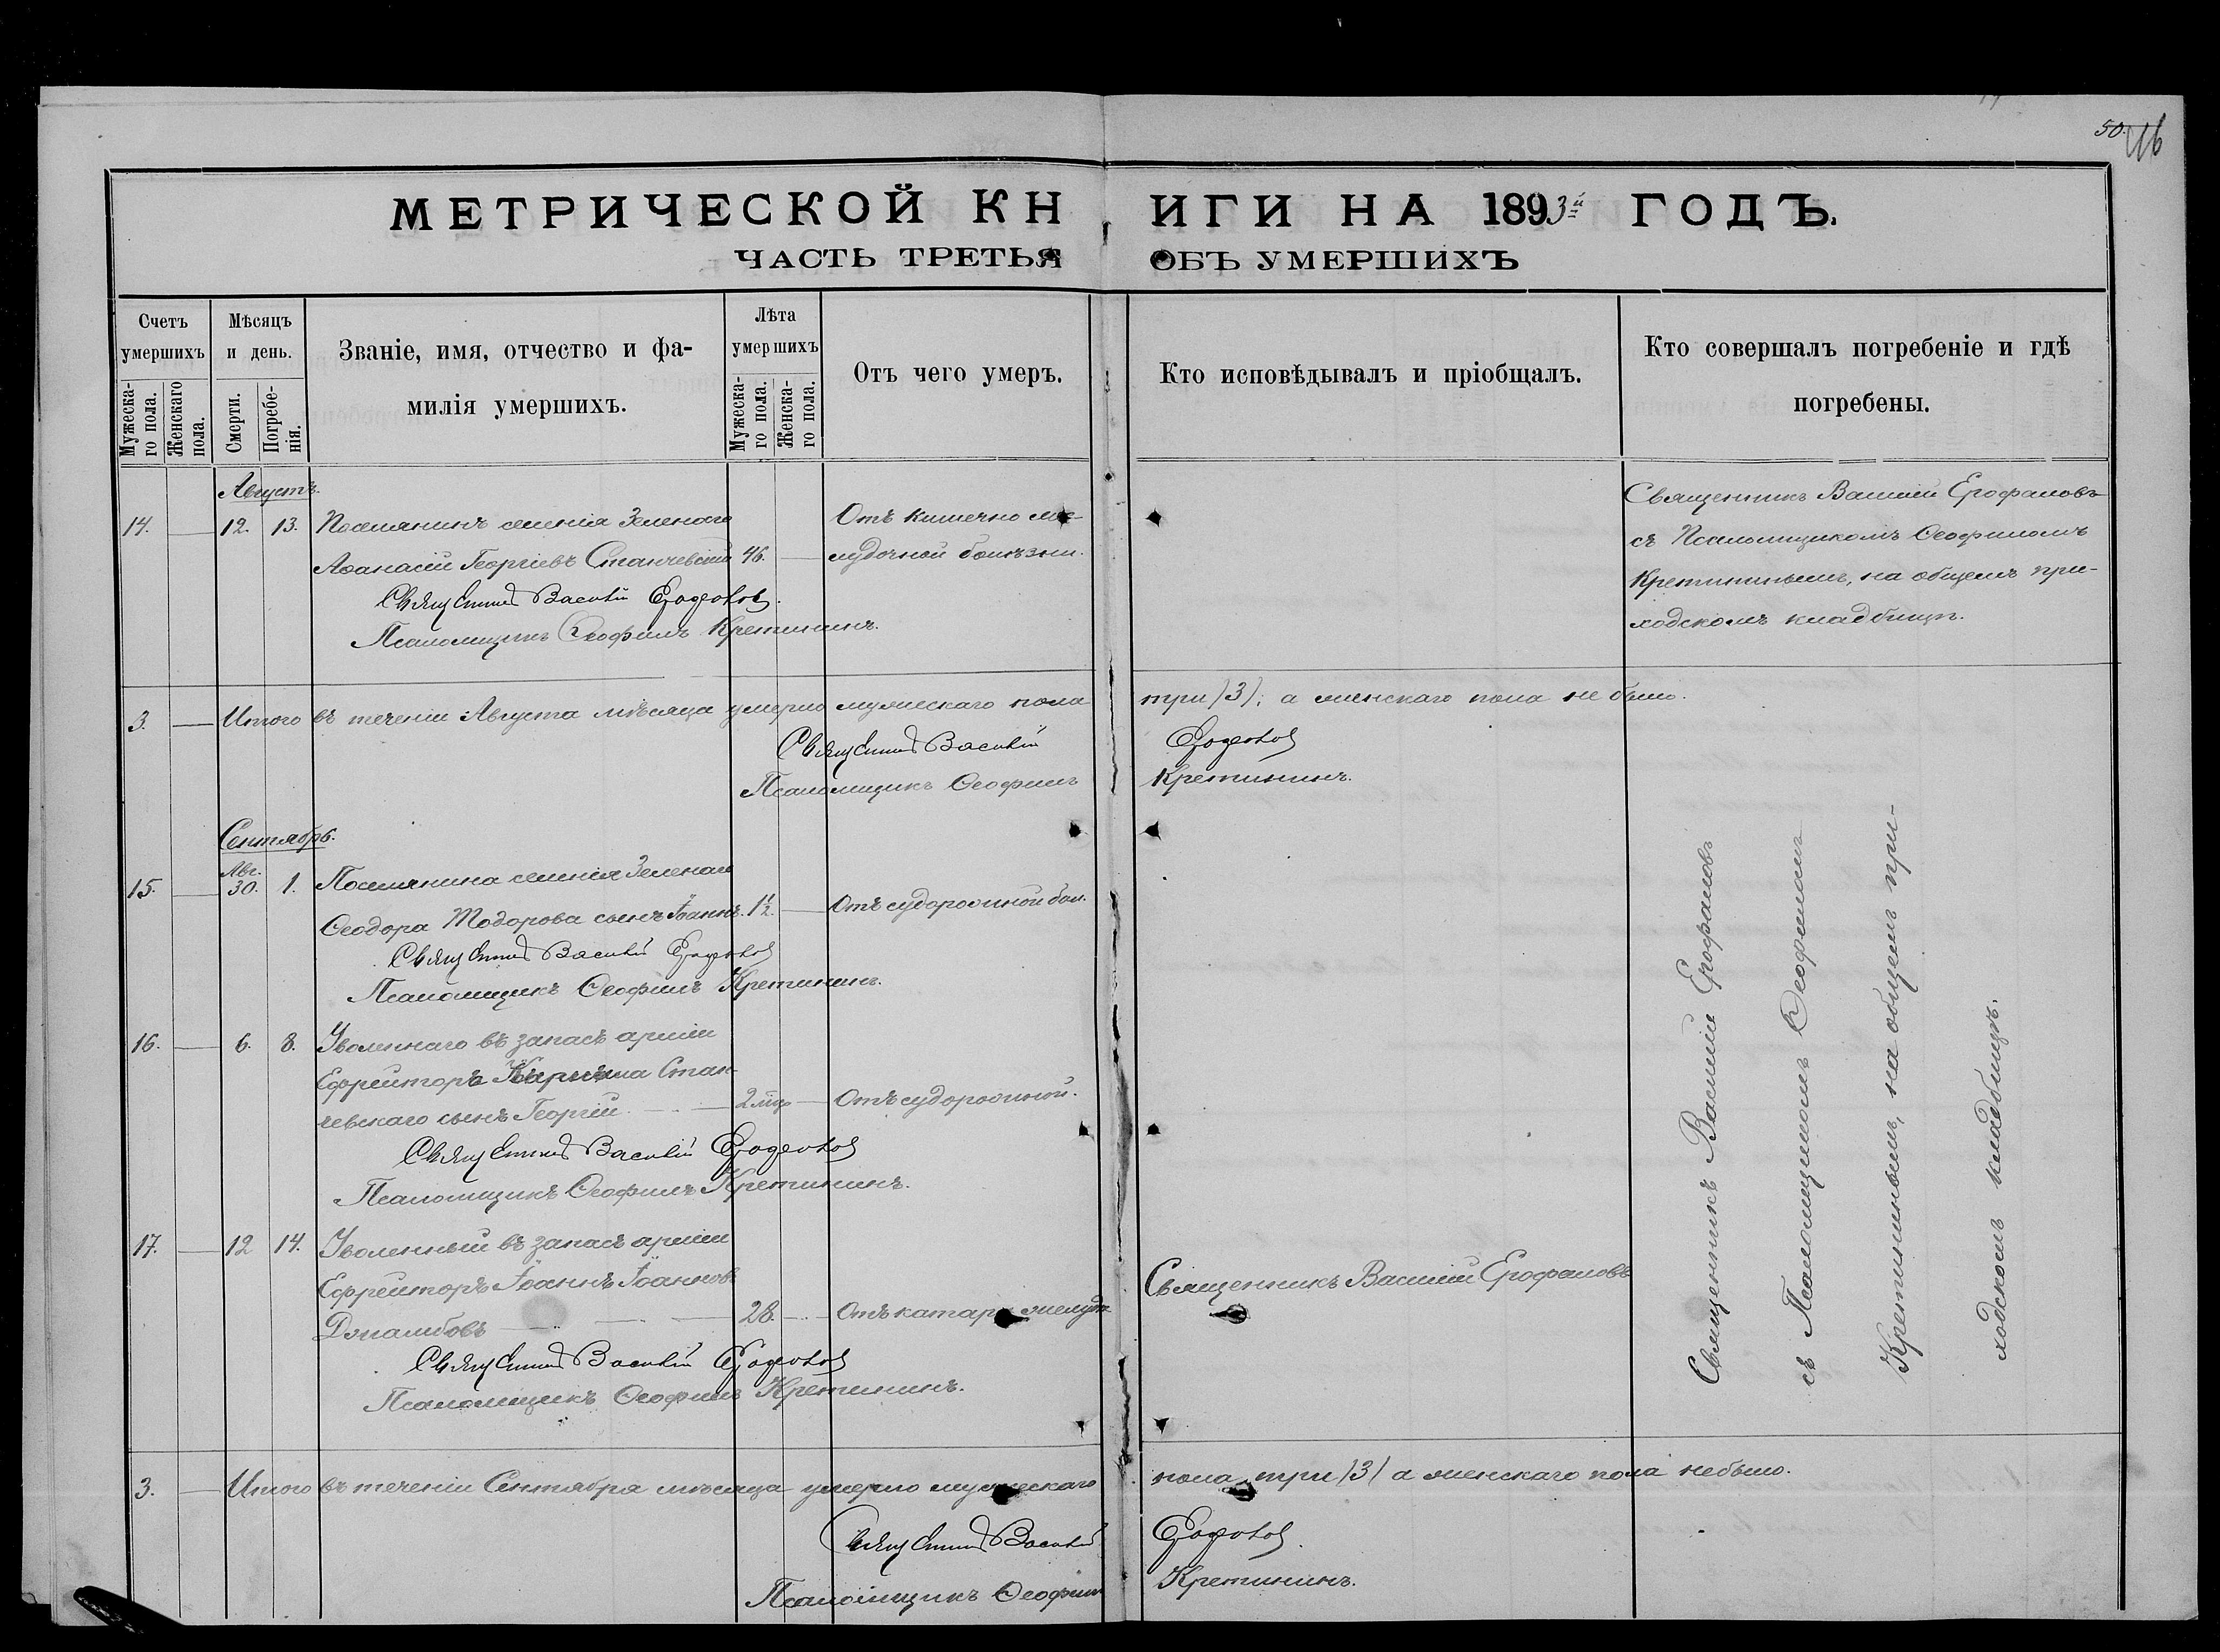 50. 116
МЕТРИЧЕСКОЙ КНИГИ НА 1893й ГОДЪ.
ЧАСТЬ ТРЕТЬЯ ОБЪ УМЕРШИХЪ
Счетъ умершихъ
Мужескаго пола.
Женскаго пола.
Мѣсяцъ и день.
Смерти.
Погребенія.
Званіе, имя, отчество и фа-
милія умершихъ.
Лѣта умершихъ
Мужескаго пола.
Женскаго пола.
Отъ чего умеръ.
Кто исповѣдывалъ и пріобщалъ.
Кто совершалъ погребеніе и гдѣ
погребены.
Августъ.
14. — 12. 13. Поселянинъ селенія Зеленаго
Аѳанасій Георгіевъ Станчевскій 46. —
Отъ кишечно же-
лудочной болѣзни.
Священникъ Василій Ерофаловъ
съ Псаломщикомъ Ѳеофиломъ
Кретининымъ, на общемъ при-
ходскомъ кладбищѣ.
Священникъ Василій
Псаломщикъ Ѳеофилъ Кретининъ.
3. — Итого въ теченіи Августа мѣсяца умерло мужескаго пола три /3/; а женскаго пола не было.
Священникъ Василій
Псаломщикъ Ѳеофилъ Кретининъ.
Сентябрь.
15. — Авг. 30. 1. Поселянина селенія Зеленаго
Ѳеодора Тодорова сынъ Іоаннъ. 1½. — Отъ судорожной бол.
Священникъ Василій
Псаломщикъ Ѳеофилъ Кретининъ.
16. — 6. 8. Уволеннаго въ запасъ арміи
Ефрейтора Стан-
чевскаго сынъ Георгій — 2 мц — Отъ судорожной.
Священникъ Василій
Псаломщикъ Ѳеофилъ Кретининъ.
17. — 12 14. Уволенный въ запасъ арміи
Ефрейторъ Іоаннъ Іоанновъ
28. — Отъ катара желуд.
Священникъ Василій Ерофаловъ
Священникъ Василій
Псаломщикъ Ѳеофилъ Кретининъ.
Священникъ Василій Ерофаловъ
съ Псаломщикомъ Ѳеофиломъ
Кретининымъ, на общемъ при-
ходскомъ кладбищѣ.
3. — Итого въ теченіи Сентября мѣсяца умерло мужескаго пола три /3/ а женскаго пола небыло.
Священникъ Василій
Псаломщикъ Ѳеофилъ Кретининъ.